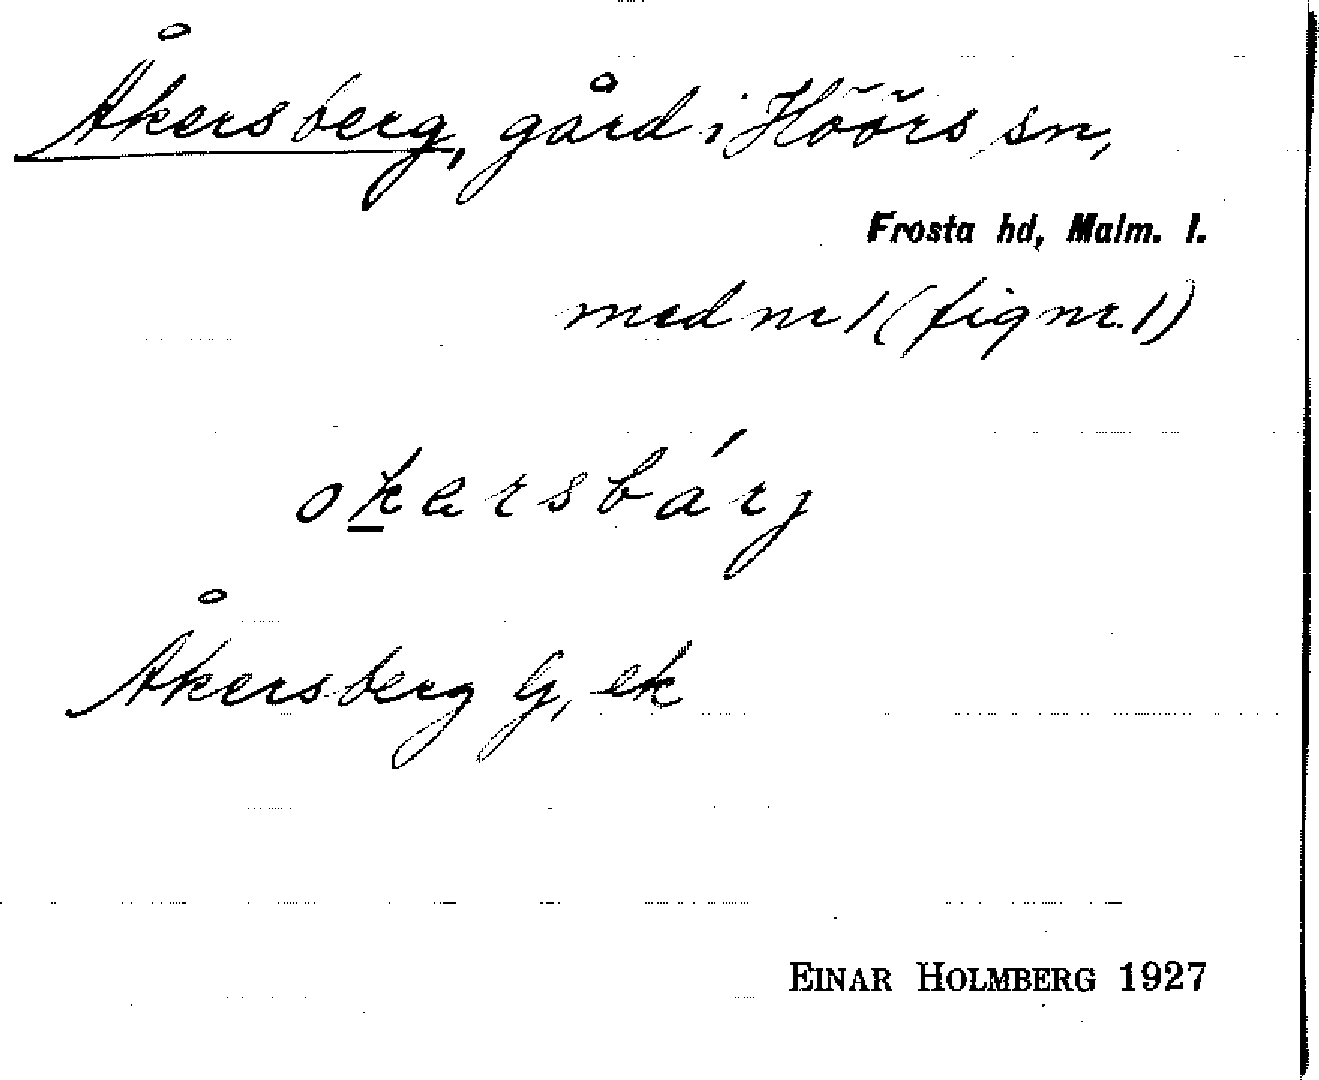 Åkersberg, gård i Höörs sn,
Frosta hd, Malm. l.
med nr 1 (fig nr. 1)
okarsbárj
Åkersberg G, ek
EINAR HOLMBERG 1927